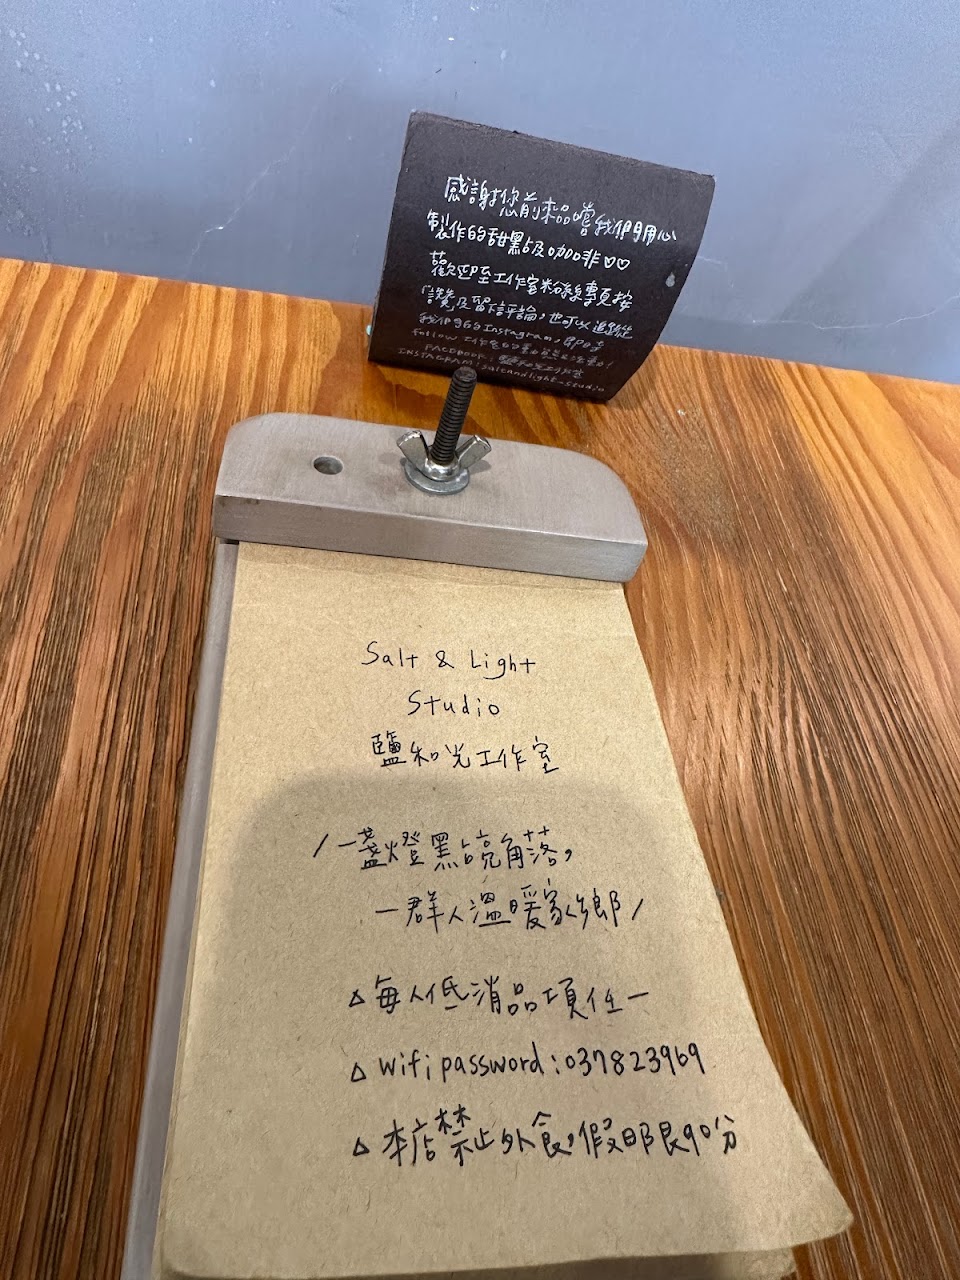 感謝您前來品嚐我們用心
製作的甜點及咖啡♡♡
歡迎至工作室粉絲專頁按
讚及留言評論,也可以追蹤
我們的Instagram,
follow 工作室的
FACEBOOK: 鹽和光工作室
INSTAGRAM: saltandlight-studio
Salt & Light
Studio
鹽和光工作室
/一盞燈點亮角落,
一群人溫暖家鄉/
△每人低消品項任一
△ wifi password:037823969
△ 本店禁止外食,假日限90分